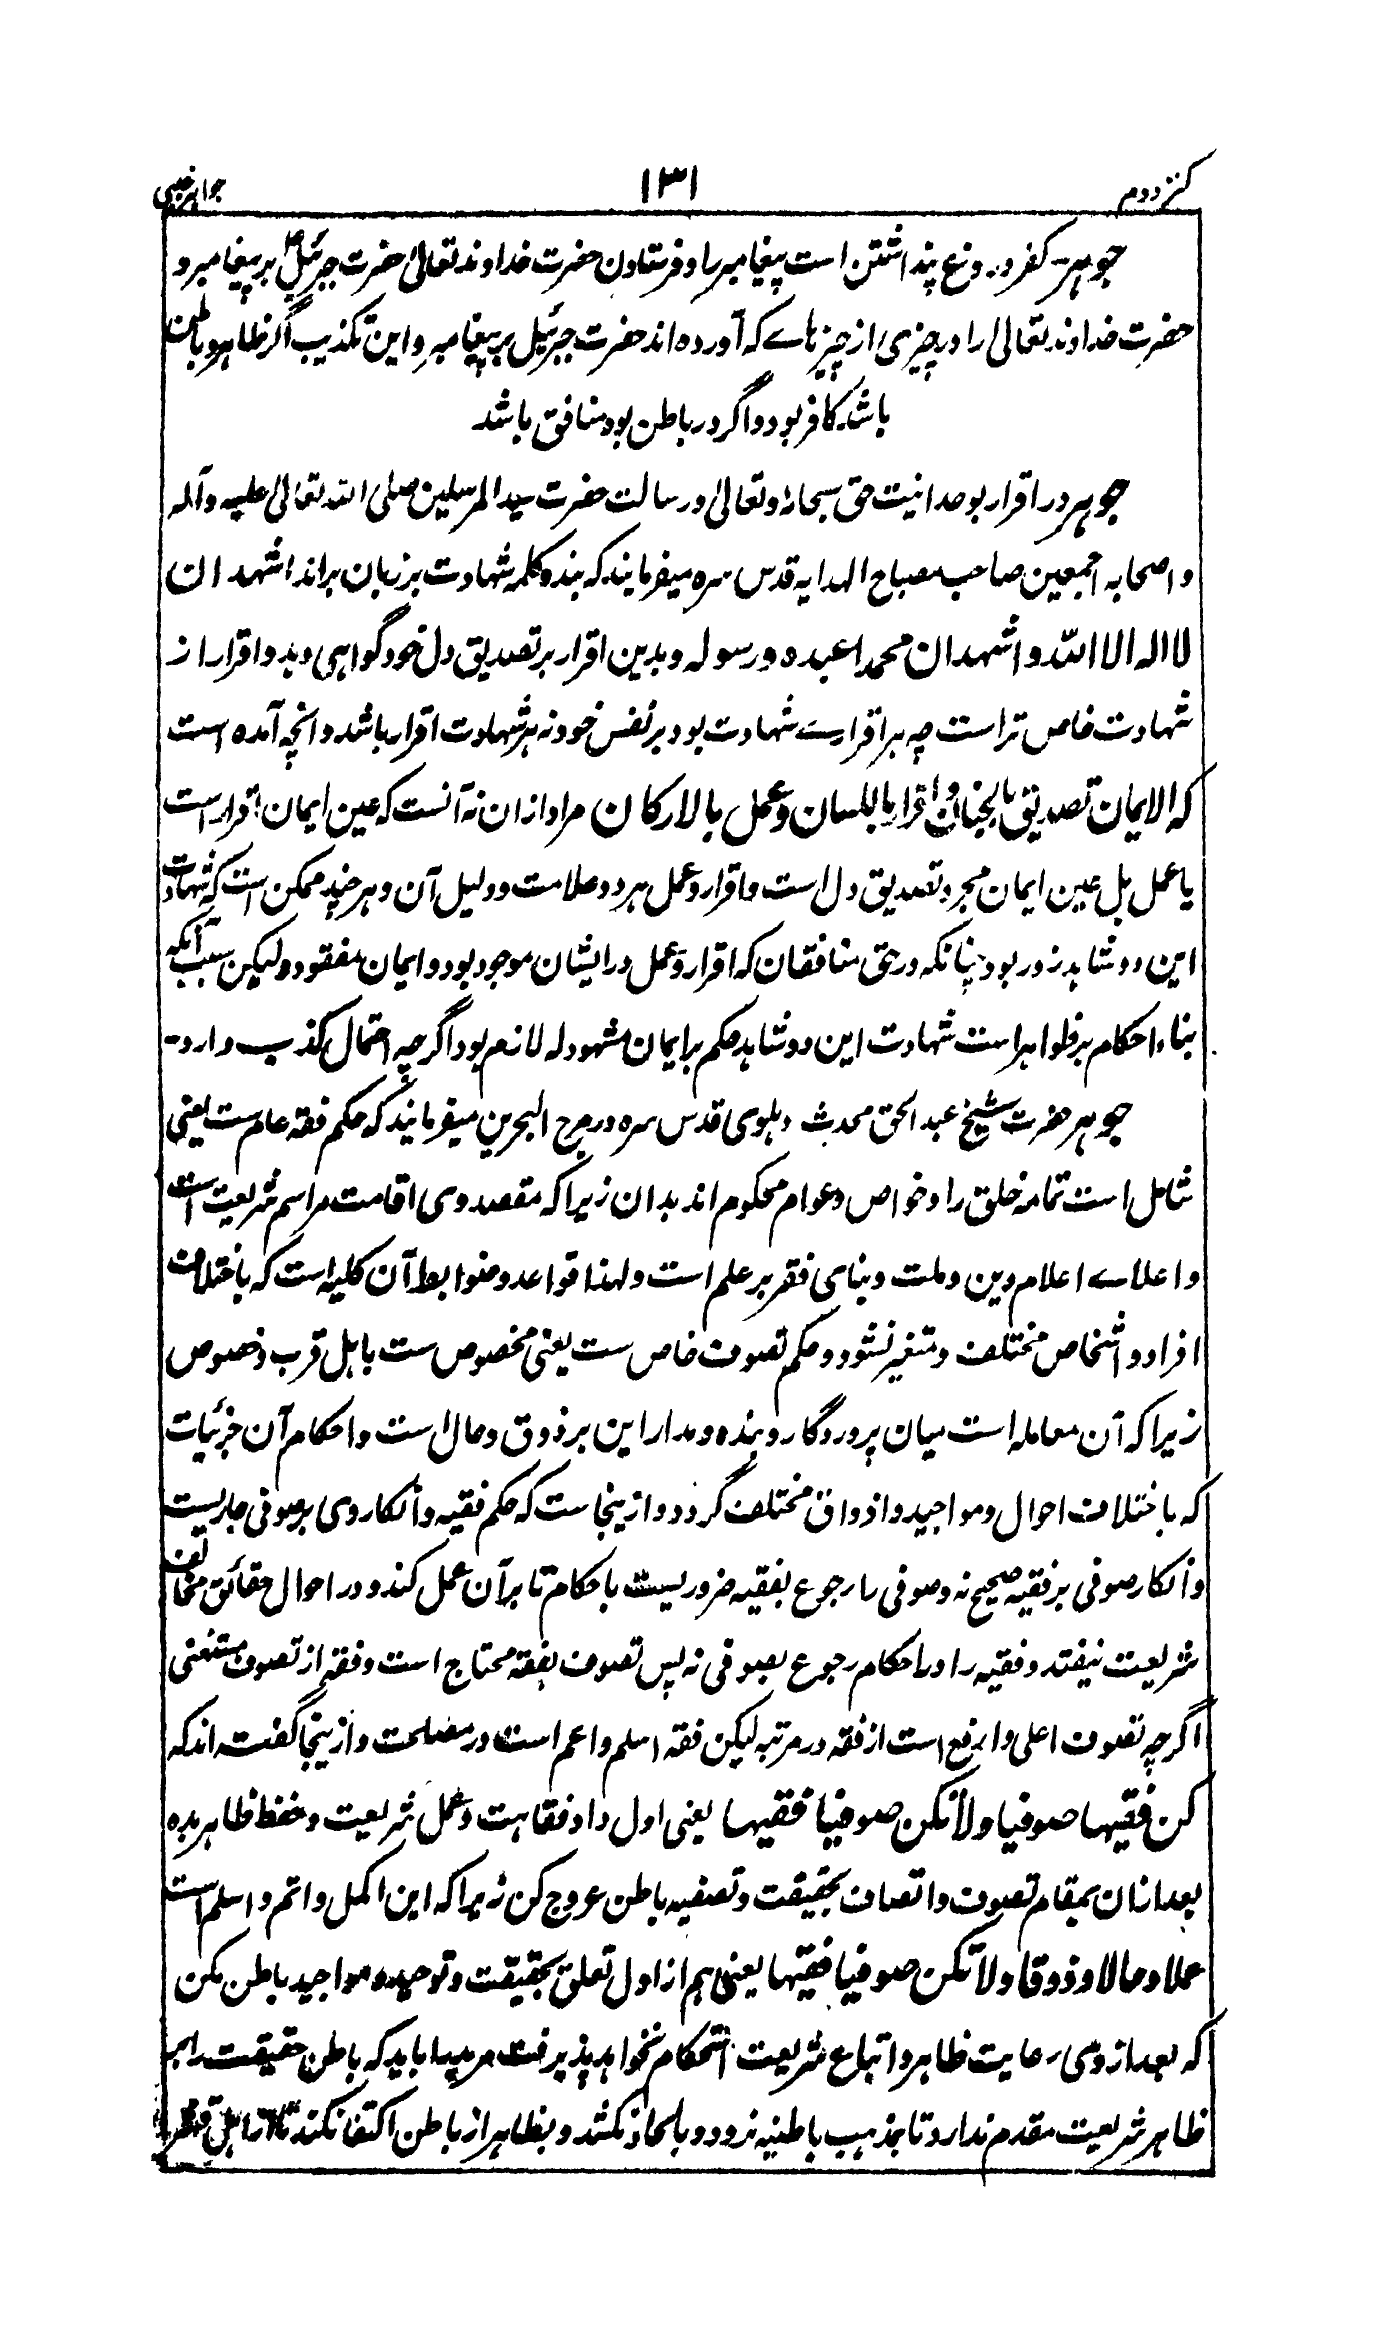 کنز دوم
۱۳۱
جواہر غیبی
جوہر ۔ کفر دروغ پنداشتن است پیغامبر را و فرستادن حضرت خداوند تعالیٰ حضرت جبرئیلؑ بر پیغامبر و
حضرت خداوند تعالی را در چیزی از چیزہاے کہ آوردہ اند حضرت جبرئیل بر پیغامبر و این تکذیب اگر ظاہر و باطن
باشد کافر بود و اگر در باطن بود منافق باشد
جوہر در اقرار بوحدانیت حق سبحانہ و تعالیٰ و رسالت حضرت سید المرسلین صلی اللہ تعالیٰ علیہ و آلہ
و اصحابہ اجمعین صاحب مصباح الہدایہ قدس سرہ میفرمایند کہ بندہ کلمہ شہادت بر زبان براند اشہد ان
لا الہ الا اللہ و اشہد ان محمدا عبدہ و رسولہ و بدین اقرار بر تصدیق دل خود گواہی دہد و اقرار از
شہادت خاص تر است چہ ہر اقرارے شہادت بود بر نفس خود نہ ہر شہادت اقرار باشد و انچہ آمدہ است
کہ الایمان تصدیق بالجنان و اقرار باللسان و عمل بالارکان مراد ازان نہ آنست کہ عین ایمان اقرار است
یا عمل بل عین ایمان مجرد تصدیق دل است و اقرار و عمل ہر دو علامت و دلیل آن و ہر چند ممکن است کہ شہادت
این دو شاہد زور بود چنانکہ در حق منافقان کہ اقرار و عمل در ایشان موجود بود و ایمان مفقود و لیکن سبب آنکہ
بناء احکام بر ظواہر است شہادت این دو شاہد حکم بر ایمان مشہود لہ لازم بود اگرچہ احتمال کذب دارد ۔
جوہر حضرت شیخ عبد الحق محدث دہلوی قدس سرہ در مرج البحرین میفرمایند کہ حکم فقہ عام ست یعنی
شامل است تمامہ خلق را و خواص و عوام محکوم اند بدان زیرا کہ مقصد وی اقامت مراسم شریعت است
و اعلاے اعلام دین و ملت و بنای فقر بر علم است و لہذا قواعد و ضوابط آن کلیہ است کہ باختلاف
افراد و اشخاص مختلف و متغیر نشود و حکم تصوف خاص ست یعنی مخصوص ست باہل قرب و خصوص
زیرا کہ آن معاملہ است میان پروردگار و بندہ و مدار این بر ذوق و حال است و احکام آن جزئیات
کہ باختلاف احوال و مواجید و اذواق مختلف گردد و ازینجاست کہ حکم فقیہ و انکار وی بر صوفی جاریست
و انکار صوفی بر فقیہ صحیح نہ و صوفی را رجوع بفقیہ ضروریست باحکام تا بر آن عمل کند و در احوال حقائق مخالف
شریعت نیفتد و فقیہ را در احکام رجوع بصوفی نہ پس تصوف بفقہ محتاج است و فقہ از تصوف مستغنی
اگرچہ تصوف اعلی و ارفع است از فقہ در مرتبہ لیکن فقہ اسلم و اعم است در مصلحت و ازینجا گفتہ اند کہ
کن فقیہا صوفیا و لا تکن صوفیا فقیہا یعنی اول داد فقاہت و عمل شریعت و حفظ ظاہر بدہ
بعد ازان بمقام تصوف و اتصاف بحقیقت و تصفیہ باطن عروج کن زیرا کہ این اکمل و اتم و اسلم است
عملا و حالا و ذوقا و لا تکن صوفیا فقیہا یعنی ہم از اول تعلق بحقیقت و توحید و مواجید باطن مکن
کہ بعد از وی رعایت ظاہر و اتباع شریعت استحکام نخواہد پذیرفت مرید را باید کہ باطن حقیقت را بر
ظاہر شریعت مقدم ندارد تا بمذہب باطنیہ نرود و بالحاد نکشد و بظاہر از باطن اکتفا نکند تا از اہل